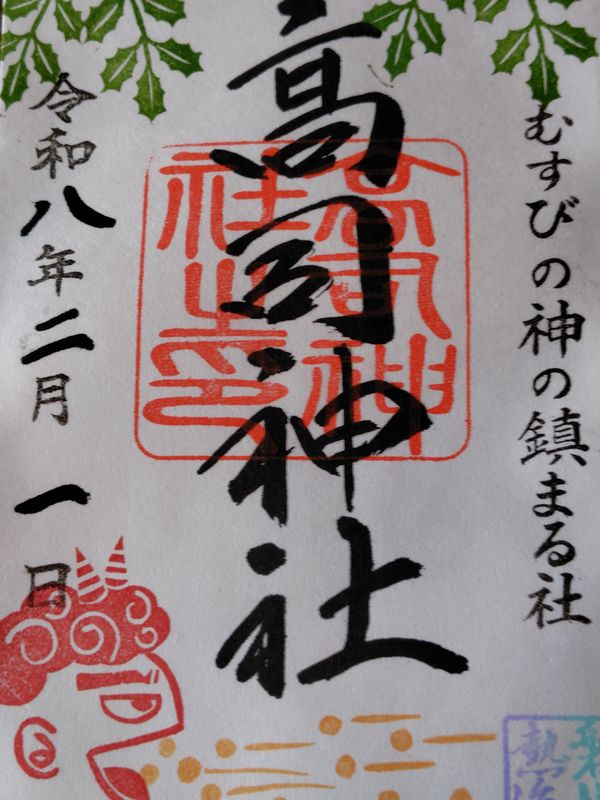 むすびの神の鎮まる社
高司神社
高司神社之印
令和八年二月一日